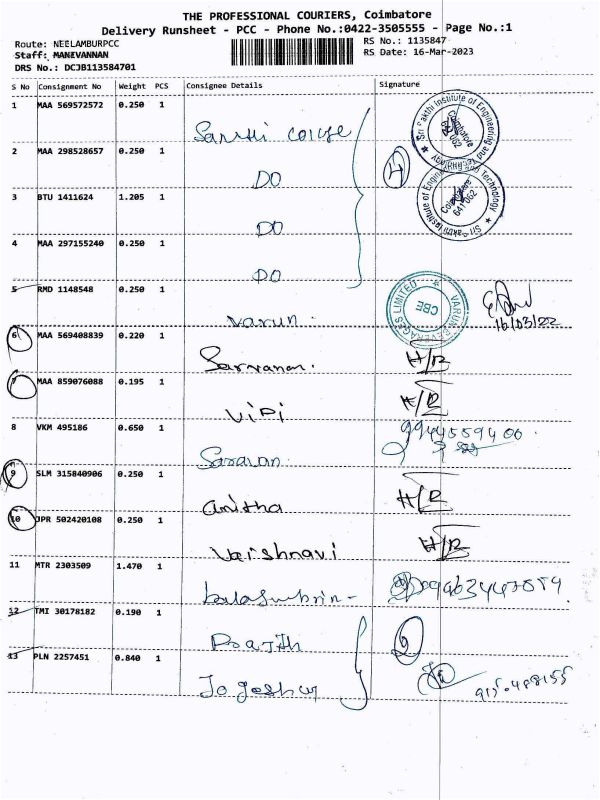 THE PROFESSIONAL COURIERS, Coimbatore
Delivery Runsheet - PCC - Phone No.:0422-3505555 - Page No.:1
Route: NEELAMBURPCC
RS No.: 1135847
Staff: MANEVANNAN
RS Date: 16-Mar-2023
DRS No.: DCJB113584701
S No Consignment No Weight PCS Consignee Details Signature
1 MAA 569572572 0.250 1
2 MAA 298528657 0.250 1 DO
3 BTU 1411624 1.205 1 DO
4 MAA 297155240 0.250 1 DO
4
5 RMD 1148548 0.250 1 Varun.
VARUN BEVERAGES LIMITED
CBE
16/03/22
6 MAA 569408839 0.220 1 Sarvanan. H/R
7 MAA 859076088 0.195 1 ViPi H/R
8 VKM 495186 0.650 1 Saravan
9 SLM 315840906 0.250 1 anitha H/R
10 JPR 502420108 0.250 1 Vaishnavi H/R
11 MTR 2303509 1.470 1
12 TMI 30178182 0.190 1
13 PLN 2257451 0.840 1
Sri Sakthi Institute of Engineering and Technology
Coimbatore
641 062